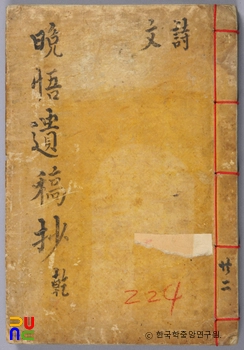 詩
文
晩悟遺稿抄 乾
廿二
224
RUNS
© 한국학중앙연구원